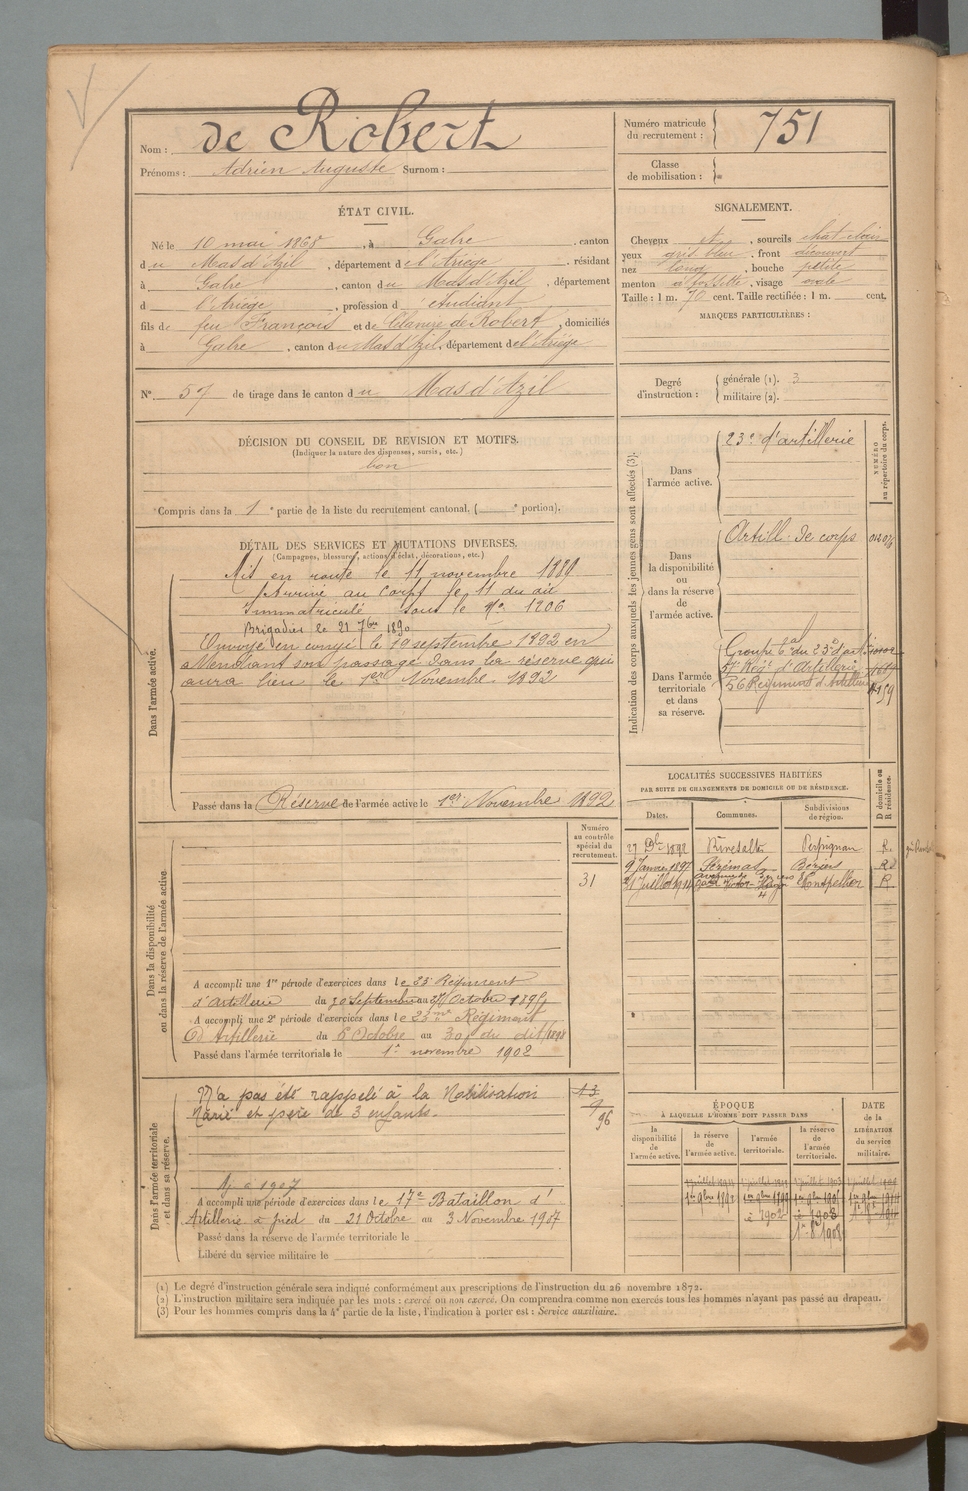 Nom : de Robert
Prénoms : Adrien Auguste Surnom :
Numéro matricule du recrutement : 751
Classe de mobilisation :
ÉTAT CIVIL.
Né le 10 mai 1868, à Gabre, canton
du Mas d'Azil, département de l'Ariège, résidant
à Gabre, canton du Mas d'Azil, département
d l'Ariège, profession d'étudiant
fils de feu François et de Célanire de Robert, domiciliés
à Gabre, canton du Mas d'Azil, département de l'Ariège
N° 57 de tirage dans le canton du Mas d'Azil
SIGNALEMENT.
Cheveux et, sourcils chat clair
yeux gris bleu, front découvert
nez long, bouche petite
menton à fossette, visage ovale
Taille : 1 m. 70 cent. Taille rectifiée : 1 m. cent.
MARQUES PARTICULIÈRES :
Degré d'instruction : générale (1). 3
militaire (2).
DÉCISION DU CONSEIL DE REVISION ET MOTIFS.
(Indiquer la nature des dispenses, sursis, etc.)
bon
Compris dans la 1e partie de la liste du recrutement cantonal, ( e portion).
DÉTAIL DES SERVICES ET MUTATIONS DIVERSES.
(Campagnes, blessures, actions d'éclat, décorations, etc.)
Dans l'armée active.
Mis en route le 11 novembre 1889
Arrivé au corps le 11 du dit
Immatriculé sous le No 1206
Brigadier le 21 7bre 1890
Envoyé en congé le 19 septembre 1892 en
attendant son passage dans la réserve qui
aura lieu le 1er Novembre 1892
Passé dans la Réserve de l'armée active le 1er Novembre 1892
Indication des corps auxquels les jeunes gens sont affectés (3).
NUMÉRO au répertoire du corps.
Dans l'armée active.
23e d'artillerie
Dans la disponibilité ou dans la réserve de l'armée active.
Artill. de corps
Dans l'armée territoriale et dans sa réserve.
57e Régt d'Artillerie
56 Régiment d'Artillerie
LOCALITÉS SUCCESSIVES HABITÉES
PAR SUITE DE CHANGEMENTS DE DOMICILE OU DE RÉSIDENCE.
Dates. Communes. Subdivisions de région. D domicile ou R résidence.
Rivesaltes Perpignan R.
9 Janvier 1897 Pézénas Béziers R
Montpellier R
Dans la disponibilité ou dans la réserve de l'armée active
Numéro au contrôle spécial du recrutement.
31
A accompli une 1re période d'exercices dans le 23e Régiment
d'Artillerie du 30 Septembre au 27 Octobre 1895
A accompli une 2e période d'exercices dans le 23me Régiment
d'Artillerie du 6 Octobre au 30 du dit 1898
Passé dans l'armée territoriale le 1r novembre 1902
Dans l'armée territoriale et dans sa réserve.
N'a pas été rappelé à la Mobilisation
Marié et père de 3 enfants.
96
A accompli une période d'exercices dans le 17e Bataillon d'
Artillerie à pied du 21 Octobre au 3 Novembre 1907
Passé dans la réserve de l'armée territoriale le
Libéré du service militaire le
ÉPOQUE
À LAQUELLE L'HOMME DOIT PASSER DANS
DATE de la LIBÉRATION du service militaire.
la disponibilité de l'armée active. la réserve de l'armée active. l'armée territoriale. la réserve de l'armée territoriale.
1er 9bre 1892 1er 9bre 1899
à 1902 à 1908
(1) Le degré d'instruction générale sera indiqué conformément aux prescriptions de l'instruction du 26 novembre 1872.
(2) L'instruction militaire sera indiquée par les mots : exercé ou non exercé. On comprendra comme non exercés tous les hommes n'ayant pas passé au drapeau.
(3) Pour les hommes compris dans la 4e partie de la liste, l'indication à porter est : Service auxiliaire.